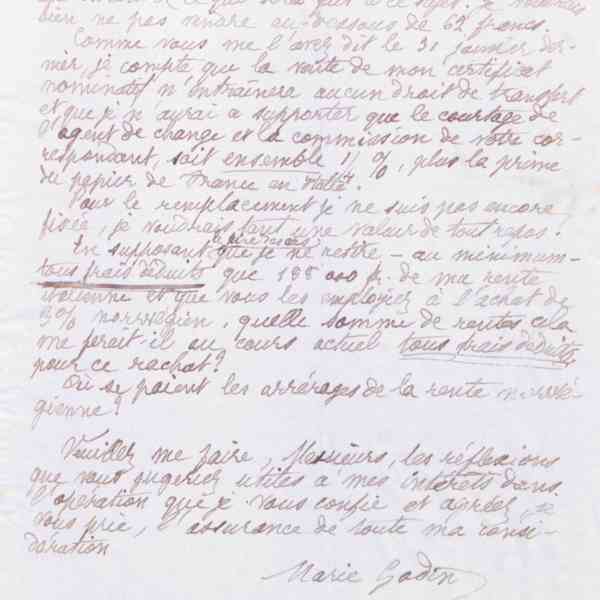 bien ne pas vendre au-dessous de 62 francs.
Comme vous me l'avez dit le 31 janvier der-
nier, je compte que la vente de mon certificat
nominatif n'entraînera aucun droit de transfert
et que je n'aurai à supporter que le courtage de
l'agent de change et la commission de votre cor-
respondant, soit ensemble 1/ %, plus la prime
du papier de France en Italie.
Pour le remplacement je ne suis pas encore
fixée, je voudrais tant une valeur de tout repos.
En supposant que je ne rentre - au minimum -
tous frais déduits que 195 000 fr. de ma rente
italienne et que vous les employiez à l'achat de
3% norwégien, quelle somme de rentes cela
me ferait-il au cours actuel tous frais déduits
pour ce rachat?
Où se paient les arrérages de la rente norwé-
gienne?
Veuillez me faire, Messieurs, les réflexions
que vous jugeriez utiles à mes intérêts dans
l'opération que je vous confie et agréez, je
vous prie, l'assurance de toute ma consi-
dération
Marie Godin